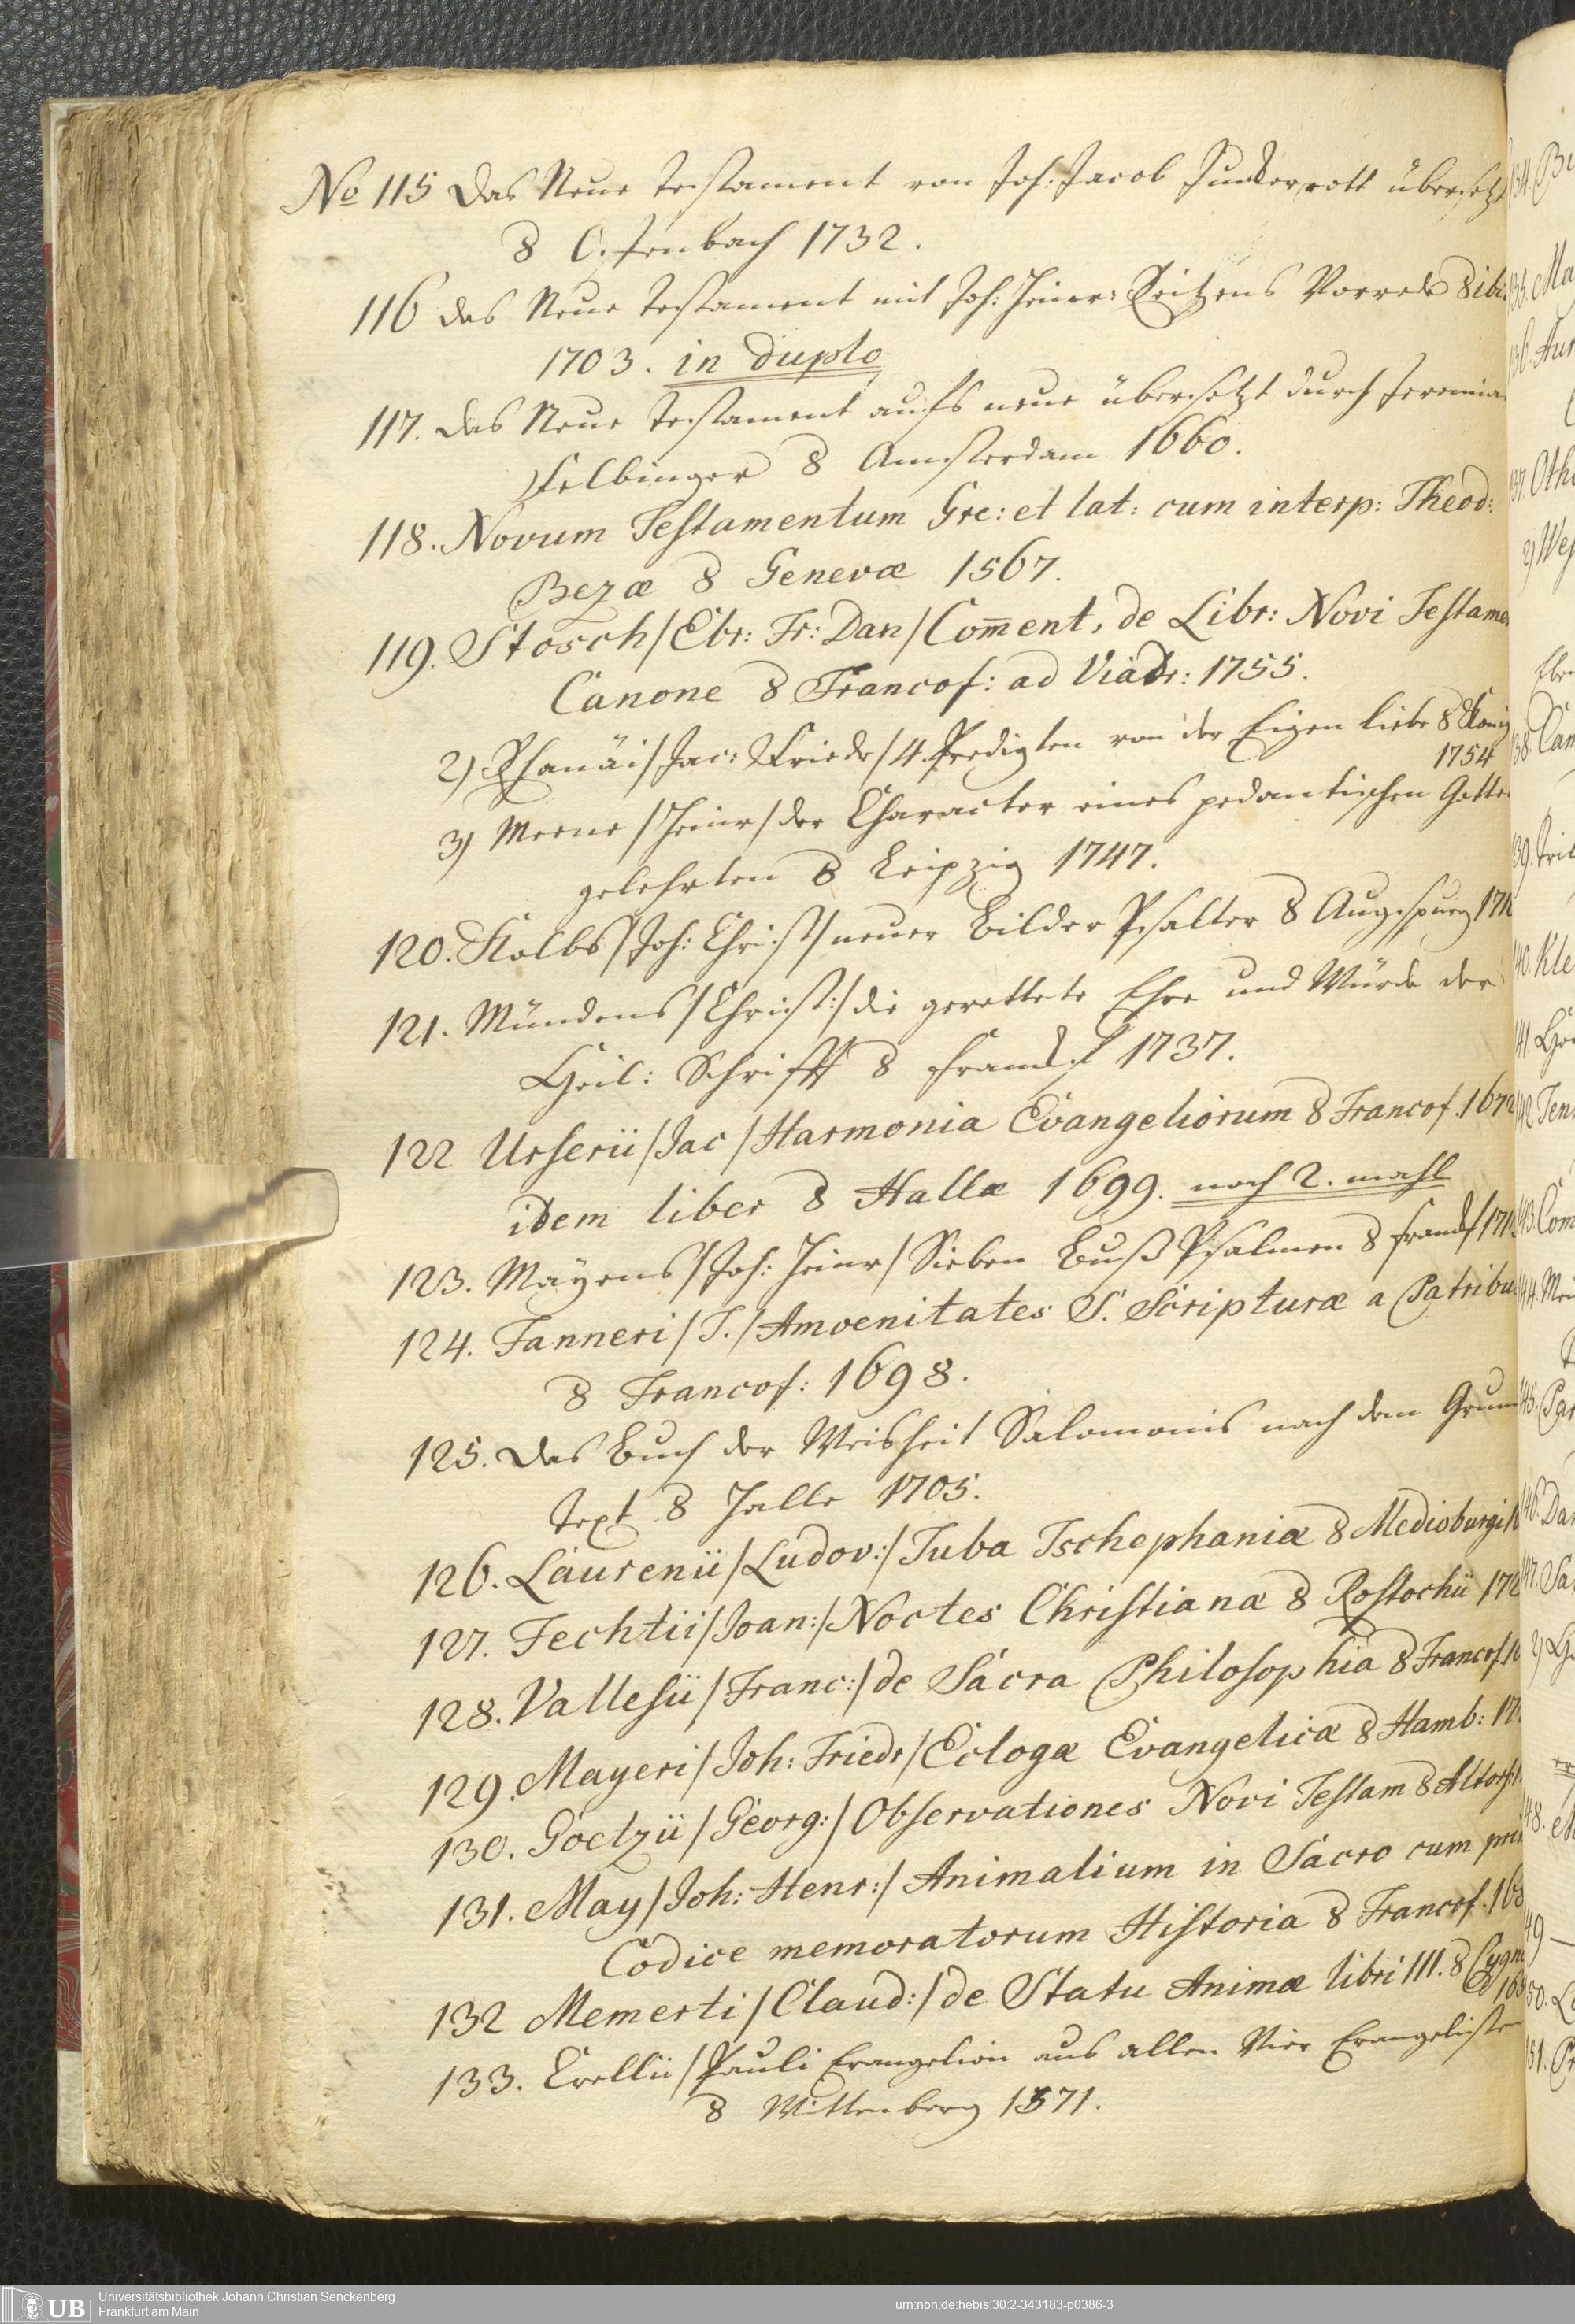 No 115 Das Neue Testament von Joh: Jacob Junckerrott übersetzt
8 Offenbach 1732.
116 das Neue Testament mit Joh: Heinr: Reitzens Vorrede 8 ibi
1703. in duplo
117. Das Neue Testament aufs neue übersetzt durch Jeremia
Felbinger 8 Amsterdam 1660.
118. Novum Testamentum Gre: et lat: cum interp: Theod:
Bezæ 8 Genevæ 1567.
119. Stosch /Ebr: Fr: Dan/ Com̄ent, de Libr: Novi Testame
Canone 8 Francof: ad Viadr: 1755.
2) Rhanäi /Jac: Friedr/ 4. Predigten von der Eigen liebe 8 König
1754
3) Meene /Heinr/ der Character eines pedantischen Gottes
gelehrten 8 Leipzig 1747.
120. Kolbs /Joh: Christ/ neuer Bilder Psalter 8 Augspurg 171
121. Mündens /Christ:/ die gerettete Ehre und Würde der
Heil: Schrifft 8 Franckf 1737.
122 Urserii /Jac/ Harmonia Evangeliorum 8 Francof. 1672
idem liber 8 Hallæ 1699. noch 2. mahl
123. Mayens /Joh: Heinr/ Sieben Buß Psalmen 8 Franckf 171
124. Fanneri /J./ Amoenitates S. Scripturæ a Patribus
8 Francof: 1698.
125. Das Buch der Weisheit Salomonis nach dem Grund
text 8 Halle 1705.
126. Laurenii /Ludov:/ Tuba Tschephaniæ 8 Medioburgi
127. Fechtii /Joan:/ Noctes Christianæ 8 Rostochii 17
128. Vallesii /Franc:/ de Sacra Philosophia 8 Francof.
129. Mayeri /Joh: Friedr/ Eclogæ Evangelicæ 8 Hamb: 17
130. Goetzii /Georg:/ Observationes Novi Testam 8 Altorf:
131. May /Joh: Henr:/ Animalium in Sacro cum pri
Codice memoratorum Historia 8 Francof. 168
132 Memerti /Claud:/ de Statu Animæ libri III. 8 Cygn
133. Crellii /Pauli Evangelion aus allen Vier Evangelisten
8 Wittenberg 1571.
Universitätsbibliothek Johann Christian Senckenberg
Frankfurt am Main
urn:nbn:de:hebis:30:2-343183-p0386-3
UB